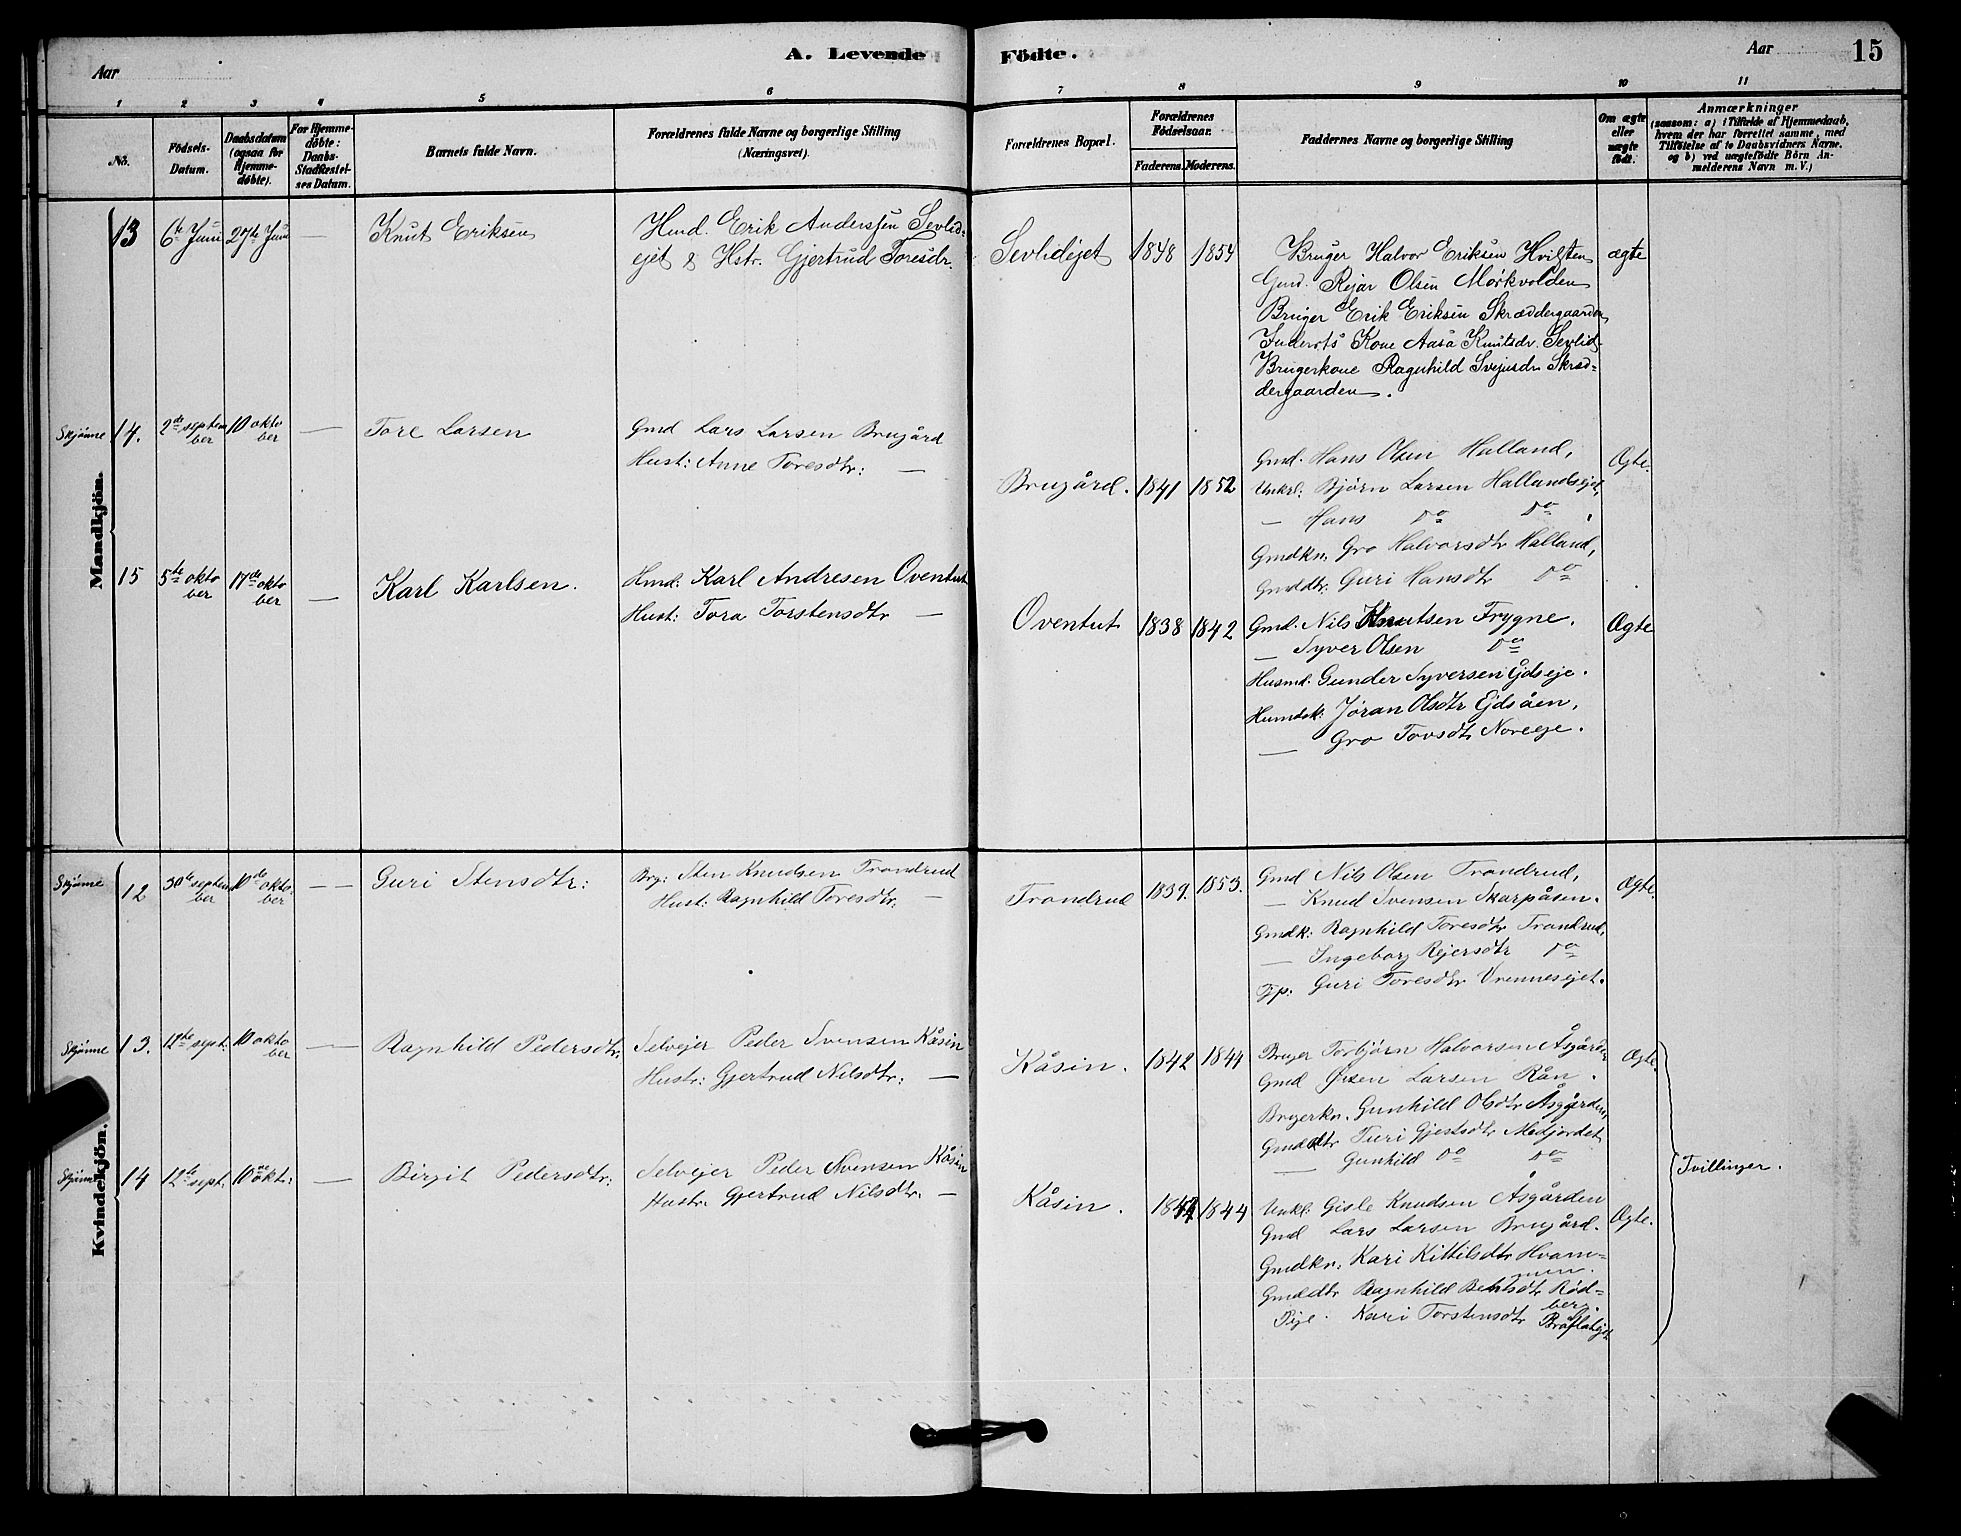 Aar
A. Levende Fødte.
Aar
15
1 2 3 4 5 6 7 8 9 10 11
No.
Födsels-
Datum.
Daabsdatum
(ogsaa for
Hjemme-
døbte).
For Hjemme-
døbte:
Daabs-
Stadfæstel-
ses Datum.
Barnets fulde Navn.
Forældrenes fulde Navne og borgerlige Stilling
(Næringsvei).
Forældrenes Bopæl.
Forældrenes
Fødselsaar.
Faderens. Moderens.
Faddernes Navne og borgerlige Stilling
Om ægte
eller
uægte
født.
Anmærkninger
(saasom: a) i Tilfælde af Hjemmedaab,
hvem der har forrettet samme, med
Tilføielse af to Daabsvidners Navne.
og b) ved uægtefødte Börn An-
melderens Navn m. V.)
Mandkjön.
13
6te Juni
27de Juni
—
Knut Eriksen
Hmd. Erik Anderssen Sevlid-
ejet & Hstr. Gjertrud Toresdr.
Sevlidejet
1848
1854
Bruger Halvor Eriksen Hvilsten
Gmd. Rejar Olsen Mørkvolden
Bruger Erik Eriksen Skræddergaarden
Indersts Kone Aasa Knutsdr. Sevlid
Brugerkone Ragnhild Svejnsdr. Skræd-
dergaarden.
ægte
Skjønne
14.
2de septem
ber
10 okto
ber
—
Tore Larsen
Gmd Lars Larsen Brugård
Hust: Anne Toresdtr: —
Brugård.
1841
1852
Gmd. Hans Olsen Halland,
Unkrl: Bjørn Larsen Hallandsejet,
— Hans do do,
Gmdkn. Gro Halvorsdtr Halland,
Gmddtr: Guri Hansdtr do
Ægte.
15
5te okto
ber
17de okto
ber
—
Karl Karlsen.
Hmd: Karl Andresen Oventut
Hust: Tora Torstensdtr —
Oventut
1838
1842
Gmd. Nils Knutsen Frygne.
— Syver Olsen do
Husmd. Gunder Syversen Ejdseje.
Humdsk: Jøran Olsdtr Ejdsåen,
— Gro Tovsdtr Noreeje.
Ægte
Kvindekjön.
Skjønne
12
30te septem
ber
10de okto-
ber
— —
Guri Stensdtr:
Brg: Sten Knudsen Trondrud
Hust: Ragnhild Toresdtr: —
Trondrud
1839.
1853.
Gmd Nils Olsen Trondrud,
— Knud Svensen Skarpåsen.
Gmdk: Ragnhild Toresdtr Trondrud,
— Ingeborg Rejersdtr do
Tjp: Guri Toresdtr Vrennesejet.
Ægte.
Skjønne
13.
12te sept:
10 okto
ber
—
Ragnhild Pedersdtr.
Selvejer Peder Svensen Kåsin
Hustr: Gjertrud Nilsdtr: —
Kåsin.
1842
1844
Bruger Torbjørn Halvorsen Åsgården
Gmd Larsen Rån.
Brugerkn. Gunhild Olsdtr Åsgården,
Gmddtr Turi Gjestsdtr Medjordet
— Gunhild do do
Ægte.
Skjønne
14
12te sept.
10de oktr:
—
Birgit Pedersdtr:
Selvejer Peder Svensen Kåsin
Hustr. Gjertrud Nilsdtr. —
Kåsin.
1842
1844
Unkl. Gisle Knudsen Åsgården
Gmd Lars Larsen Brugård.
Gmdkn: Kari Kittilsdtr Hvam-
men.
Gmddtr Ragnhild Bentsdtr Rød-
berg.
Pige. Kari Torstensdtr Bråflatejet
Ægte.
Tvillinger.